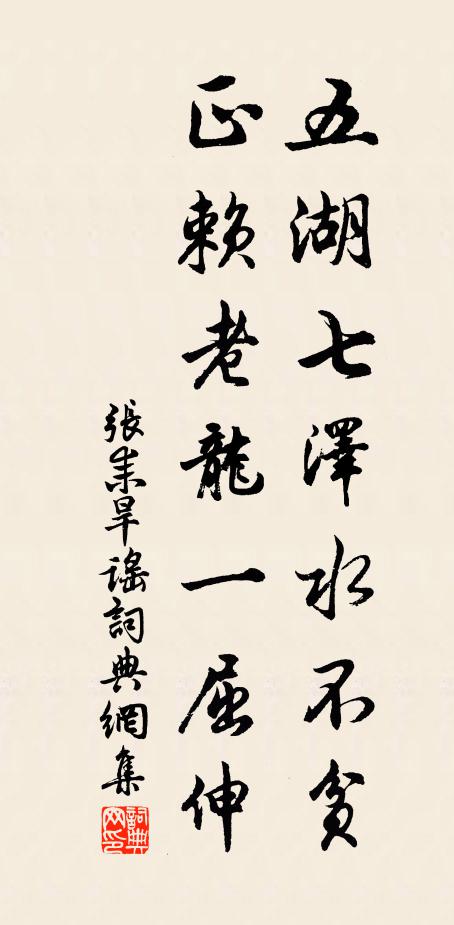 五湖七澤水不貧
正賴老龍一屈伸
張耒旱謠詞典網集
詞典網印